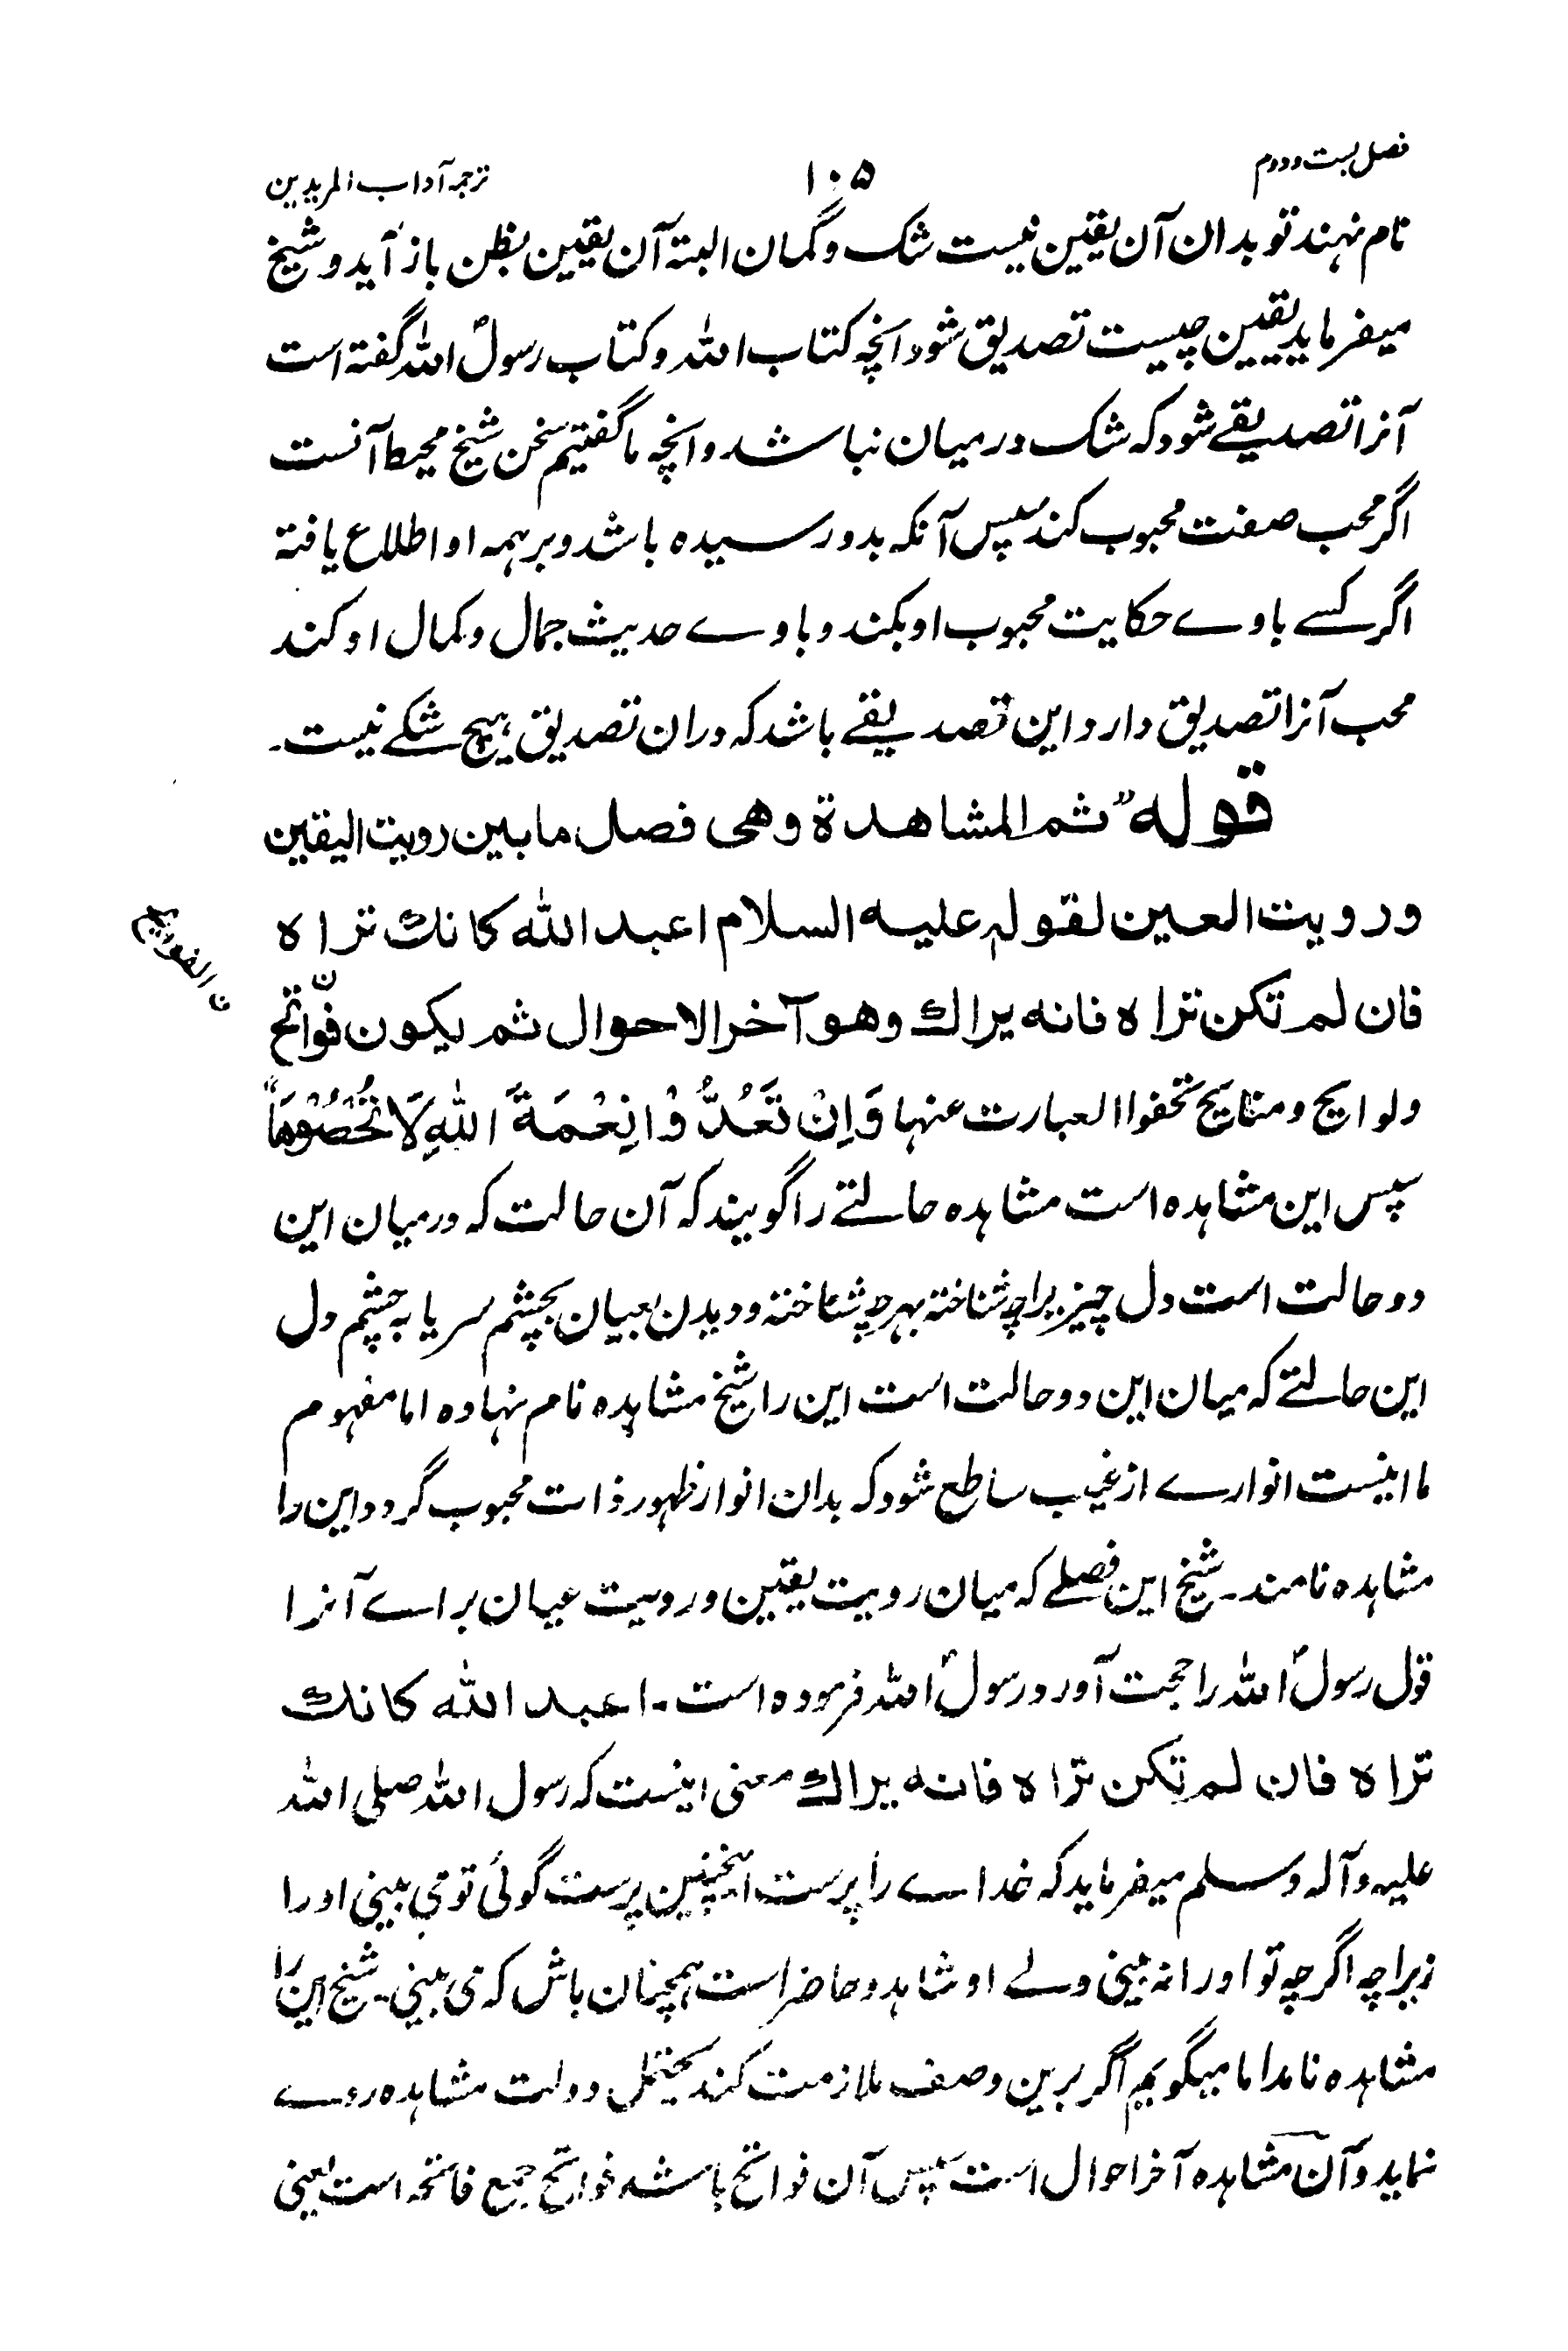 فصل بست و دوم
۱۰۵
ترجمہ آداب المریدین
نام نہند تو بدان آن یقین نیست شک و گمان البتہ آن یقین بظن باز آید و شیخ
میفرماید یقین چیست تصدیق شود انچہ کتاب اللہ و کتاب رسولؐ اللہ گفتہ است
آنرا تصدیقے شود کہ شک درمیان نباشد و انچہ ما گفتیم سخن شیخ محیط آنست
اگر محب صفت محبوب کند سپس آنکہ بدو رسیدہ باشد و بر ہمہ او اطلاع یافتہ
اگر کسے باوے حکایت محبوب او بکند و باوے حدیث جمال و کمال او کند
محب آنرا تصدیق دارد این تصدیقے باشد کہ دران تصدیق ہیچ شکے نیست۔
قولہ ”ثم المشاہدۃ وھی فصل مابین رویت الیقین
ورویت العین لقولہ علیہ السلام اعبد اللہ کانک تراہ
فان لم تکن تراہ فانہ یراک وھو آخر الاحوال ثم یکون فوّاتح
ن الفواتح
ولوایح ومنایح تخفوا العبارت عنھا وَاِنْ تَعُدُّوْا نِعْمَۃَ اللّٰہِ لَا تُحْصُوْھَا“
سپس این مشاہدہ است مشاہدہ حالتے را گویند کہ آن حالت کہ درمیان این
دو حالت است دل چیزیرا چہ شناختہ بہرچہ شناختہ و دیدن بعیان بچشم سر یا بہ چشم دل
این حالتے کہ میان این دو حالت است این را شیخ مشاہدہ نام نہادہ اما مفہوم
ما اینست انوارے از غیب ساطع شود کہ بدان انوار ظہور ذات محبوب گردد این را
مشاہدہ نامند۔ شیخ این فصلے کہ میان رویت یقین و رویت عیان براے آنرا
قول رسولؐ اللہ را حجت آورد رسولؐ اللہ فرمودہ است۔ اعبد اللہ کانک
تراہ فان لم تکن تراہ فانہ یراک معنی اینست کہ رسول اللہ صلی اللہ
علیہ وآلہ وسلم میفرماید کہ خداے را پرست اینچنین پرست گوئی تو می بینی اورا
زیراچہ اگرچہ تو اورا نہ بینی ولے او شاہد و حاضر است ہمچنان باش کہ می بینی۔ شیخ این را
مشاہدہ نامد اما میگویم اگر برین وصف ملازمت کند یحتمل دولت مشاہدہ روے
نماید و آن مشاہدہ آخر احوال است سپس آن فواتح باشد فواتح جمع فاتحہ است یعنی